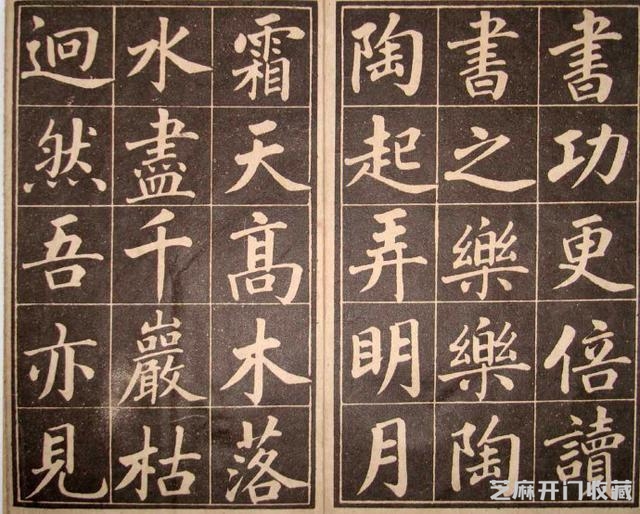 書功更倍讀
書之樂樂陶
陶起弄明月
霜天高木落
水盡千巖枯
迥然吾亦見
芝麻开门收藏